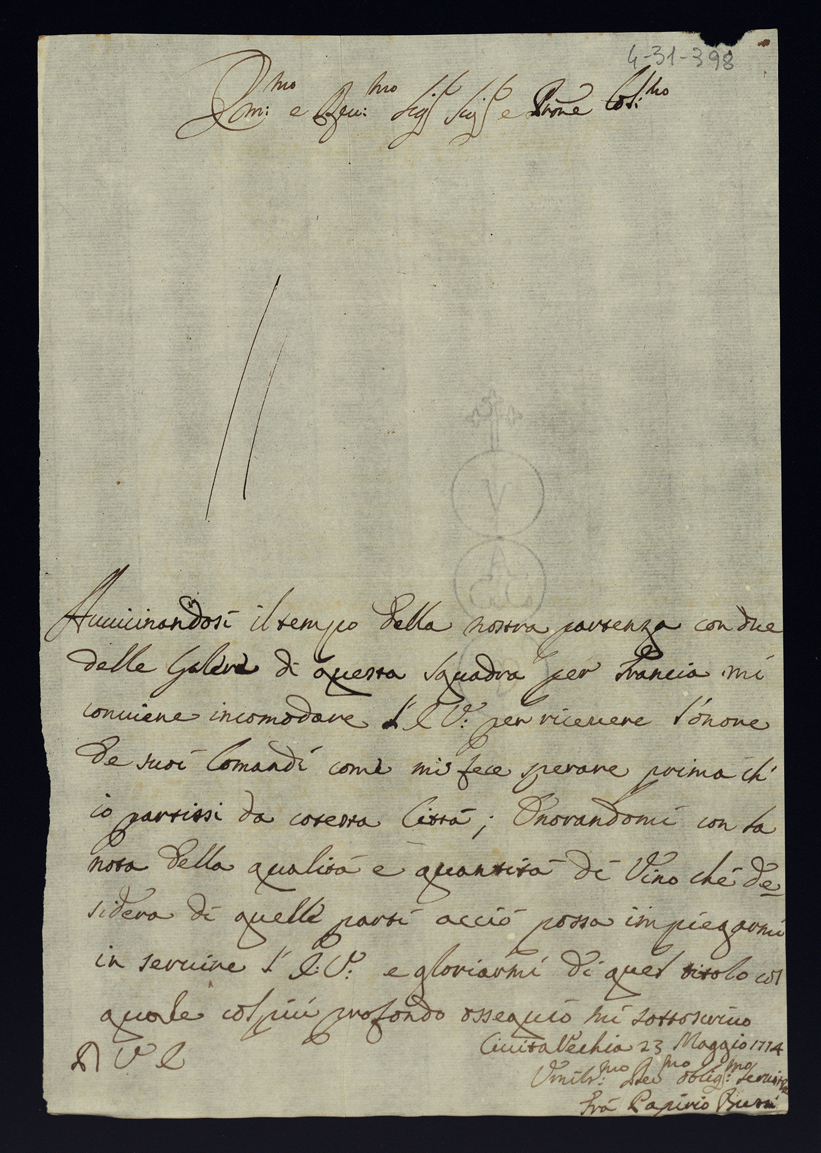 4-31-398
Em:mo e Reu:mo Sigr Sigr e Prone Col:mo
Auuicinandosi il tempo della nostra partenza con due
delle Galere di questa squadra per Francia mi
conuiene incomodare l'E V: per riceuere l'onore
de suoi Comandi come mi fece sperare prima ch'
io partissi da cotesta Città; Onorandomi con la
nota della qualità e quantità di Vino che de=
sidera di quelle parti acciò possa impiegarmi
in seruire l'E:V: e gloriarmi di quel titolo col
quale col più profondo ossequio mi sottoscriuo
CiuitaVechia 23 Maggio 1714
A V E
Vmilis:mo Deu:mo oblig:mo Seruitre
Frà Papirio Bussi